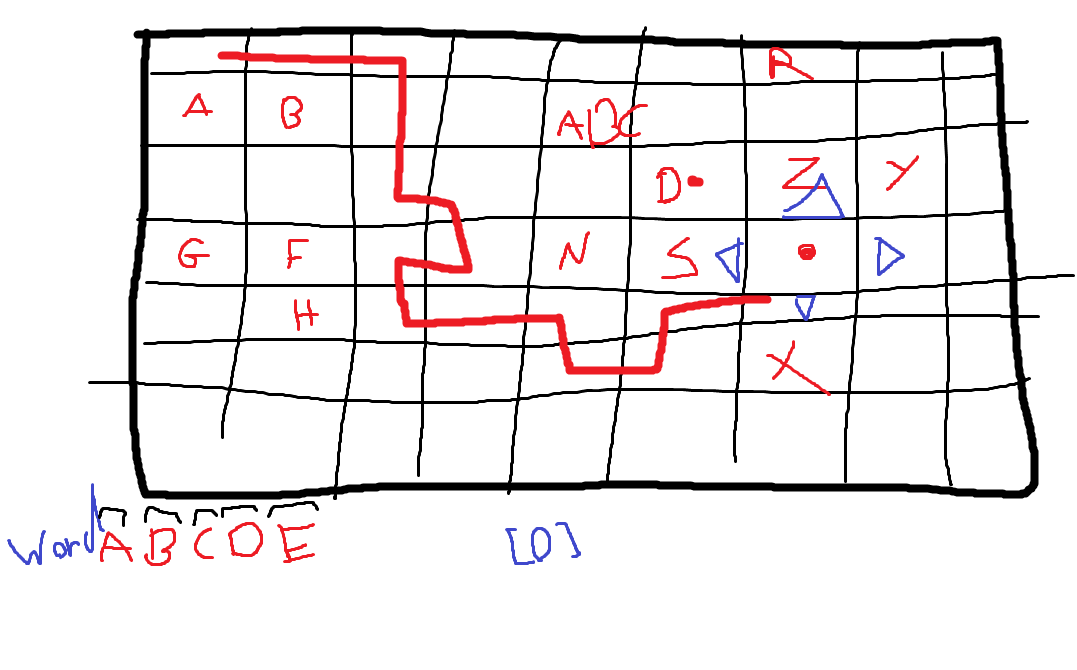 R
A B ABC
D Z Y
G F N S
H
X
Word A B C D E [D]